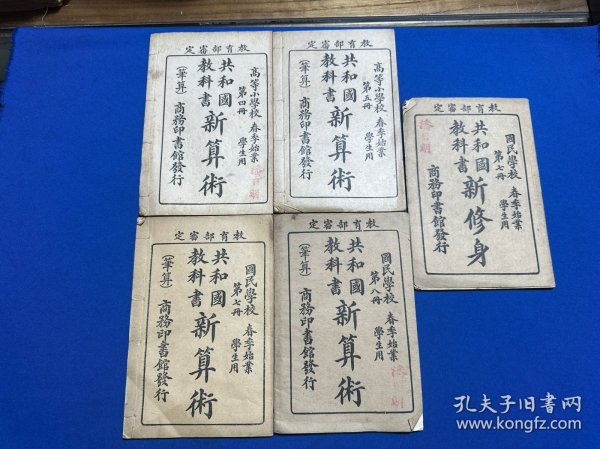 教育部審定
高等小學校 春季始業
第四冊 學生用
共和國
教科書
新算術
（筆算）
商務印書館發行
教育部審定
高等小學校 春季始業
第五冊 學生用
共和國
教科書
新算術
（筆算）
商務印書館發行
教育部審定
國民學校 春季始業
第七冊 學生用
共和國
教科書
新修身
商務印書館發行
教育部審定
國民學校 春季始業
第七冊 學生用
共和國
教科書
新算術
（筆算）
商務印書館發行
教育部審定
國民學校 春季始業
第八冊 學生用
共和國
教科書
新算術
（筆算）
商務印書館發行
孔夫子旧书网
www.kongfz.com